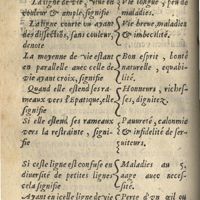 La ligne de vie, vive en
couleur & ample, signifie
Vie longue, peu de
maladies.
La ligne courte ou ayant
des dissectiõs, sans couleur,
denote
Vie breve, maladies
& imbecilité.
La moyenne de vie estant
en parallele de celle de
vie ayant croix, signifie
Bon esprit, bonté
naturelle, equabi-
lité.
Quand elle estend ses ra-
meaux vers l'Epatique, elle
signifie
Honneurs, riches-
ses, dignitez.
Si elle estend ses rameaux
vers la restrainte, signi-
fie
Pauvreté, calomnie
& infidelité de ser-
viteurs.
Si ceste ligne est confuse en
diversité de petites lignes
cela signifie
Maladies au
aage avec neces-
sité.
Ayant en icelle ligne de vie
Perte d'un œil ou